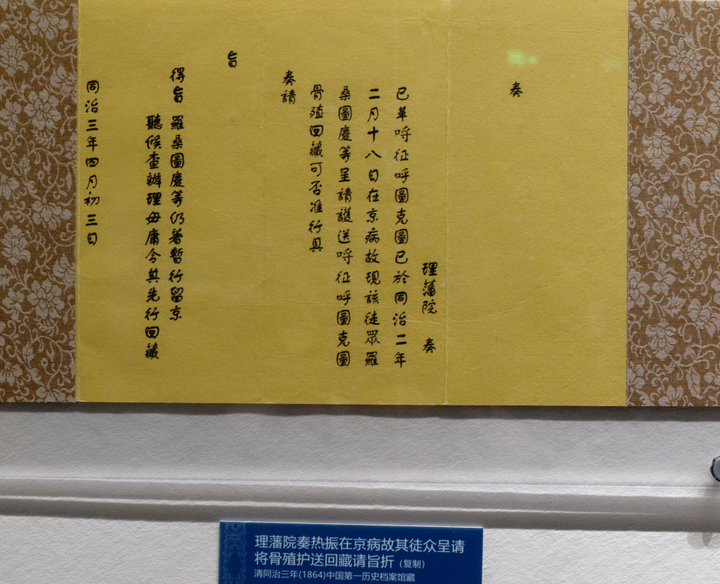 奏
理藩院 奏
已革呼征呼圖克圖已於同治二年
二月十八日在京病故現該徒眾羅
桑圖慶等呈請護送呼征呼圖克圖
骨殖回藏可否准行具
奏請
旨
得旨 羅桑圖慶等仍著暫行留京
聽候查辦理毋庸令其先行回藏
同治三年四月初三日
理藩院奏热振在京病故其徒众呈请
将骨殖护送回藏请旨折（复制）
清同治三年(1864)中国第一历史档案馆藏